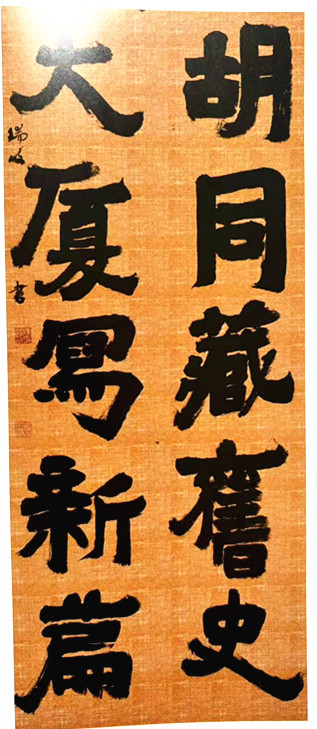 胡同藏舊史
大厦寫新篇
瑞
書